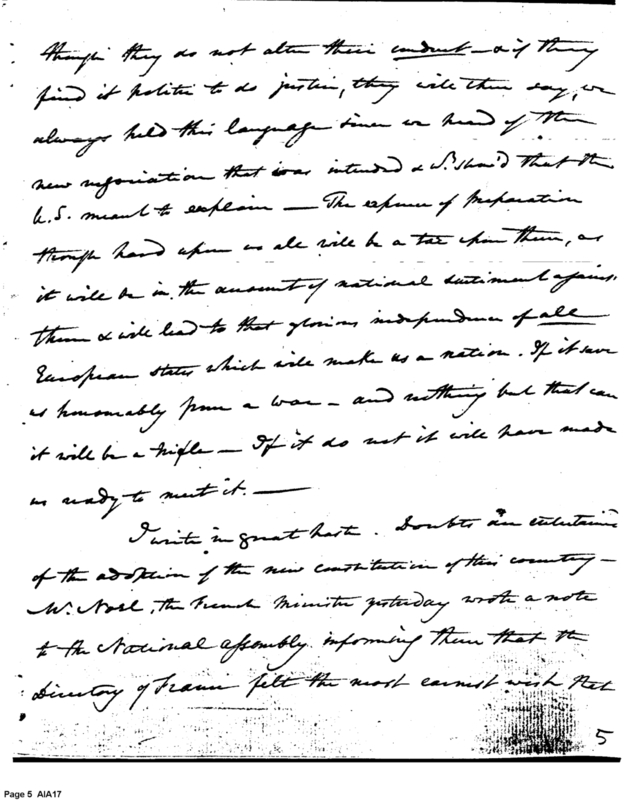 though they do not alter their conduct — & if they
find it politic to do justice, they will then say, we
always held this language since we heard of the
new negociation that was intended & shew'd that the
U.S. meant to explain — The expence of preparation
though hard upon us all will be a tax upon them, as
it will be in the amount of national sentiment against
them & will lead to that glorious independence of all
European states which will make us a nation. If it save
us honourably from a war — and nothing but that can
it will be a trifle — If it do not it will have made
us ready to meet it. —
I write in great haste. Doubts are entertained
of the adoption of the new constitution of this country —
Mr. Noel, the French Minister yesterday wrote a note
to the National assembly informing them that the
Directory of France felt the most earnest wish that
5
Page 5 AIA17